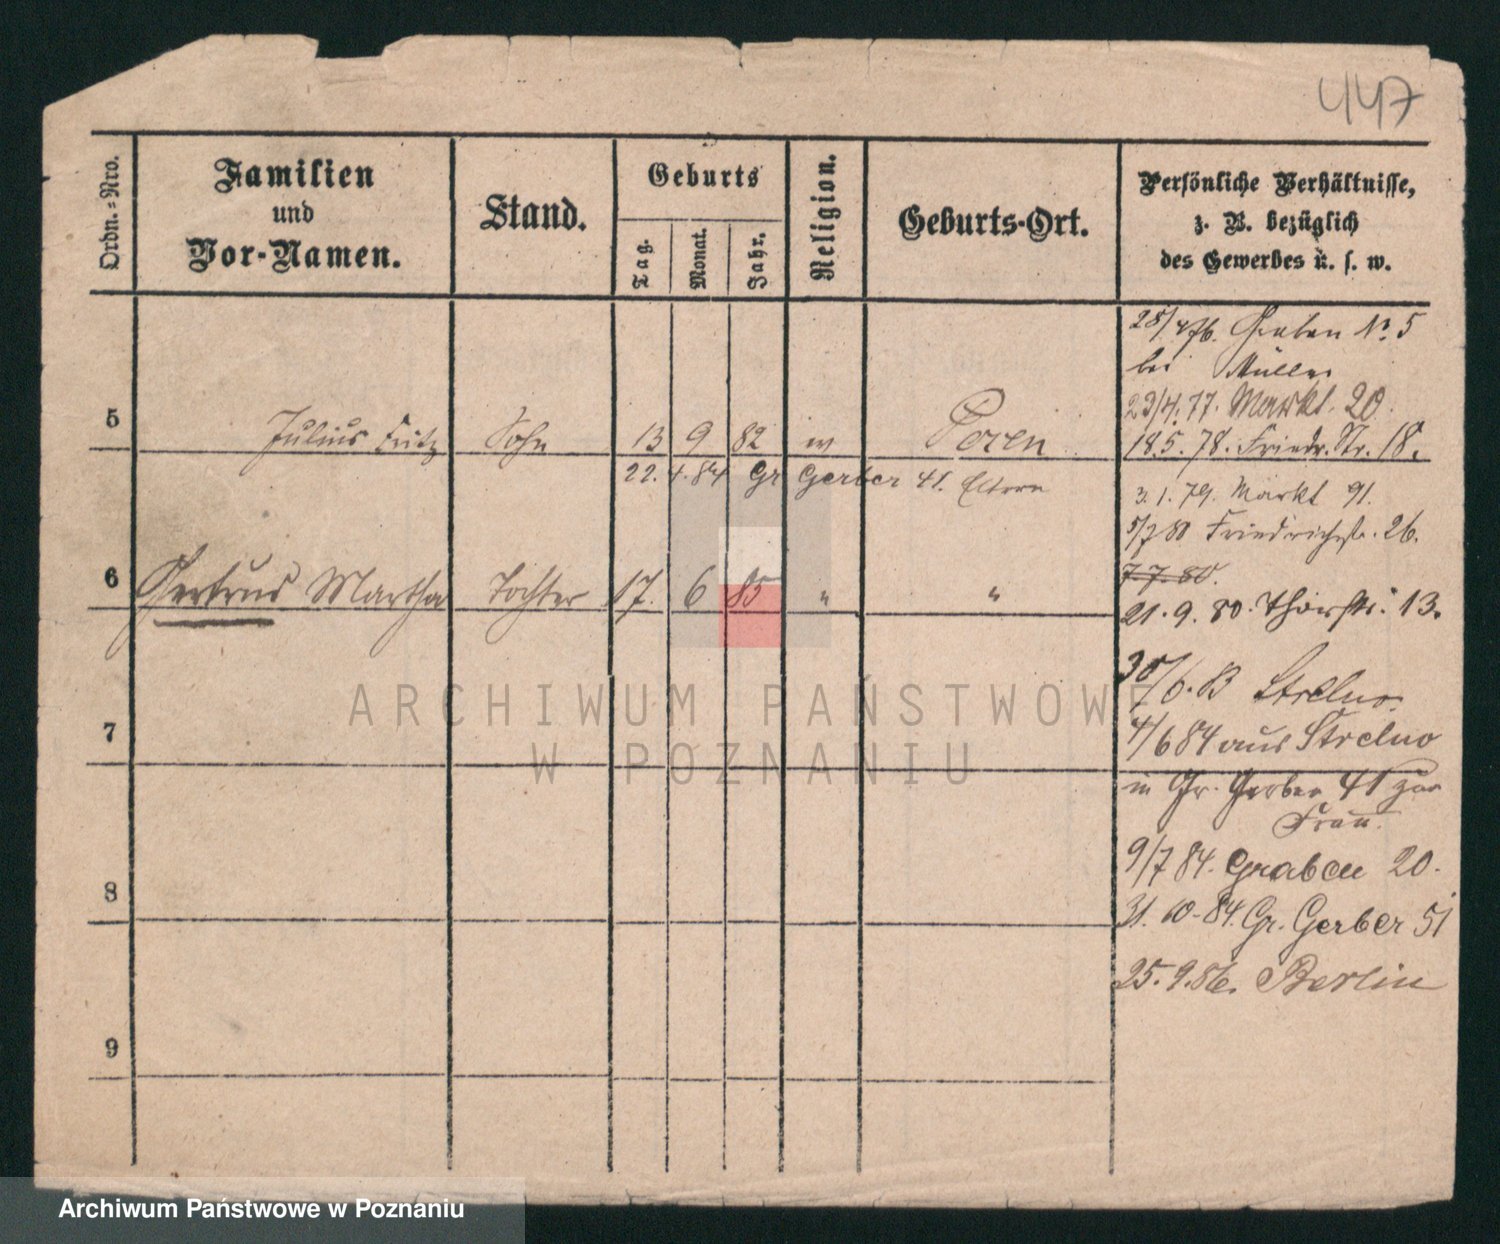 447
Ordn.=Nro.
Familien
und
Vor-Namen.
Stand.
Geburts
Tag.
Monat.
Jahr.
Religion.
Geburts-Ort.
Persönliche Verhältnisse,
z. B. bezüglich
des Gewerbes u. s. w.
28/4 76. Graben No. 5
bei Müller
23/4. 77. Markt. 20.
5 Julius Fritz Sohn 13 9 82 Posen
18.5.78. Friedr. Str. 18.
22. 4. 84 Gr Gerber 41. Eltern
3.1.79. Markt 91.
5/7 80 Friedrichstr. 26.
7.7.80.
6 Gertrud Martha Tochter 17. 6 85 " "
21.9.80. Thorstr. 13.
30/6. 83 Strelno.
4/6 84 aus Strelno
7
in Gr. Gerber 41 zur
Frau.
9/7 84. Graben 20.
8
31.10.84. Gr. Gerber 51
25.9.86. Berlin
9
ARCHIWUM PAŃSTWOWE
W POZNANIU
Archiwum Państwowe w Poznaniu